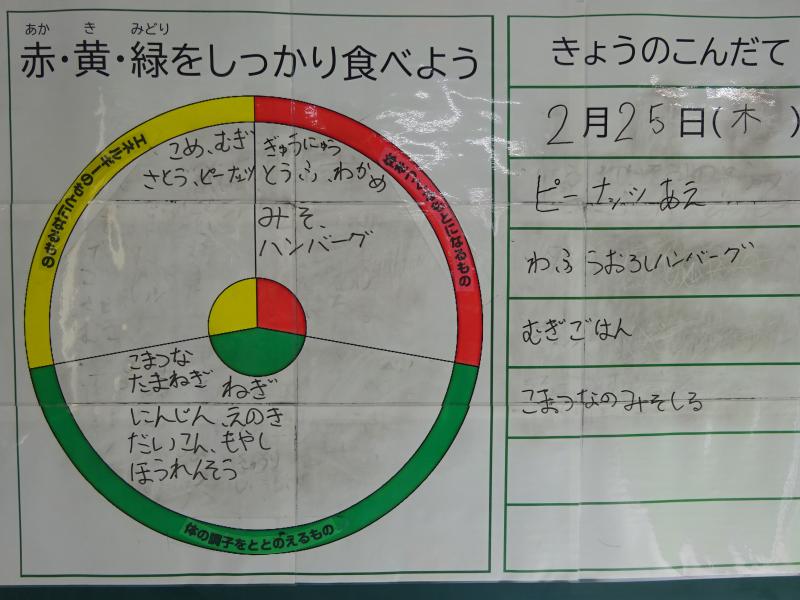 あか き みどり
赤・黄・緑をしっかり食べよう
エネルギーのもとになるもの
こめ、むぎ
さとう、ピーナッツ
ぎゅうにゅう
とうふ、わかめ
みそ、
ハンバーグ
になるもの
こまつな
たまねぎ ねぎ
にんじん、えのき
だいこん、もやし
ほうれんそう
体の調子をととのえるもの
きょうのこんだて
2月25日(木)
ピーナッツあえ
わふうおろしハンバーグ
むぎごはん
こまつなのみそしる